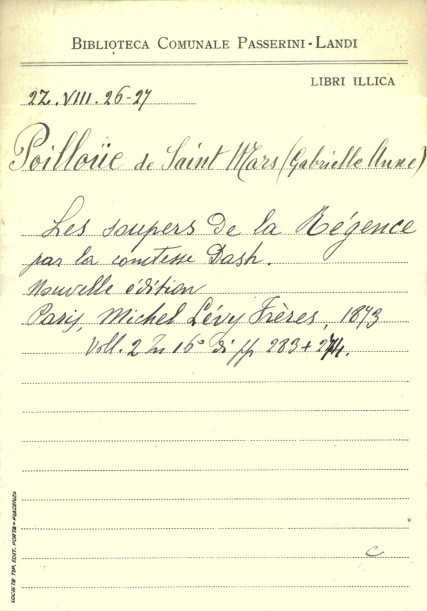 BIBLIOTECA COMUNALE PASSERINI-LANDI
LIBRI ILLICA
2Z.VIII.26-27
Poilloüe de Saint Mars (Gabrielle Anne)
Les soupers de la Régence
par la comtesse Dash.
Nouvelle édition
Paris, Michel Lévy Frères, 1873
Voll. 2 In 16° di pp 283+274.
c
SOCIETÀ TIP. EDIT. PORTA-PIACENZA